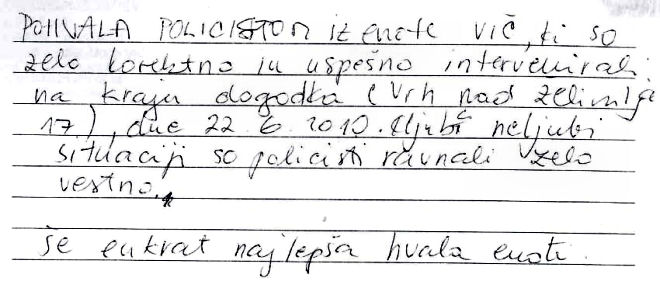 POHVALA POLICISTOM iz enote VIČ, ki so
zelo korektno in uspešno intervenirali
na kraju dogodka (Vrh nad Želimljge
17), dne 22.6.2010. Kljub neljubi
situaciji so policisti ravnali zelo
vestno.
še enkrat najlepša hvala enoti.